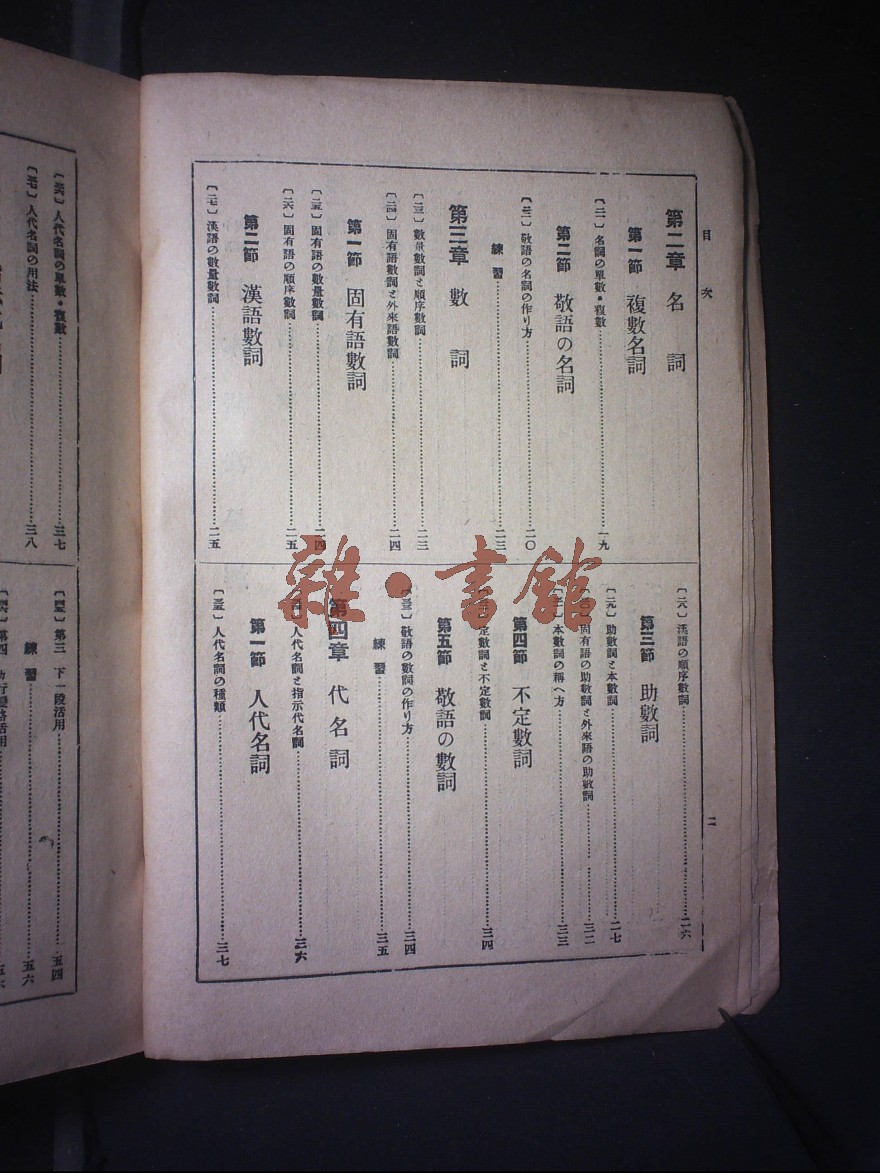 目次
二
第二章 名詞
第一節 複數名詞
〔二一〕名詞の單數・複數……一九
第二節 敬語の名詞
〔二二〕敬語の名詞の作り方……二〇
練習……二三
第三章 數詞
〔二三〕數量數詞と順序數詞……二三
〔二四〕固有語數詞と外來語數詞……二四
第一節 固有語數詞
〔二五〕固有語の數量數詞……二四
〔二六〕固有語の順序數詞……二五
第二節 漢語數詞
〔二七〕漢語の數量數詞……二五
〔二八〕漢語の順序數詞……二六
第三節 助數詞
〔二九〕助數詞と本數詞……二七
固有語の助數詞と外來語の助數詞……三二
本數詞の稱へ方……三三
第四節 不定數詞
定數詞と不定數詞……三四
第五節 敬語の數詞
〔三三〕敬語の數詞の作り方……三四
練習……三五
第四章 代名詞
人代名詞と指示代名詞……三六
第一節 人代名詞
〔三五〕人代名詞の種類……三七
〔三六〕人代名詞の單數・複數……三七
〔三七〕人代名詞の用法……三八
第三 下一段活用……五四
練習……五六
雜·書館